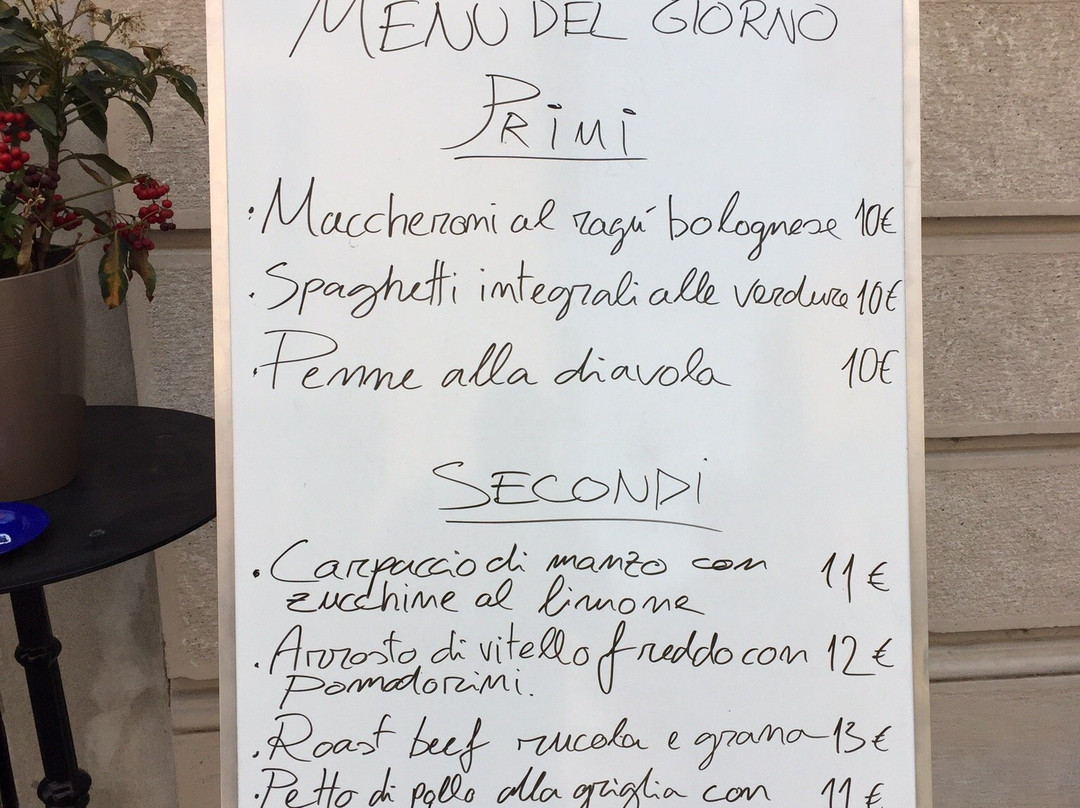 MENU DEL GIORNO
PRIMI
· Maccheroni al ragú bolognese 10€
· Spaghetti integrali alle verdure 10€
· Penne alla diavola 10€
SECONDI
· Carpaccio di manzo con 11€
zucchine al limone
· Arrosto di vitello freddo con 12€
pomodorini.
· Roast beef rucola e grana 13€
· Petto di pollo alla griglia con 11€